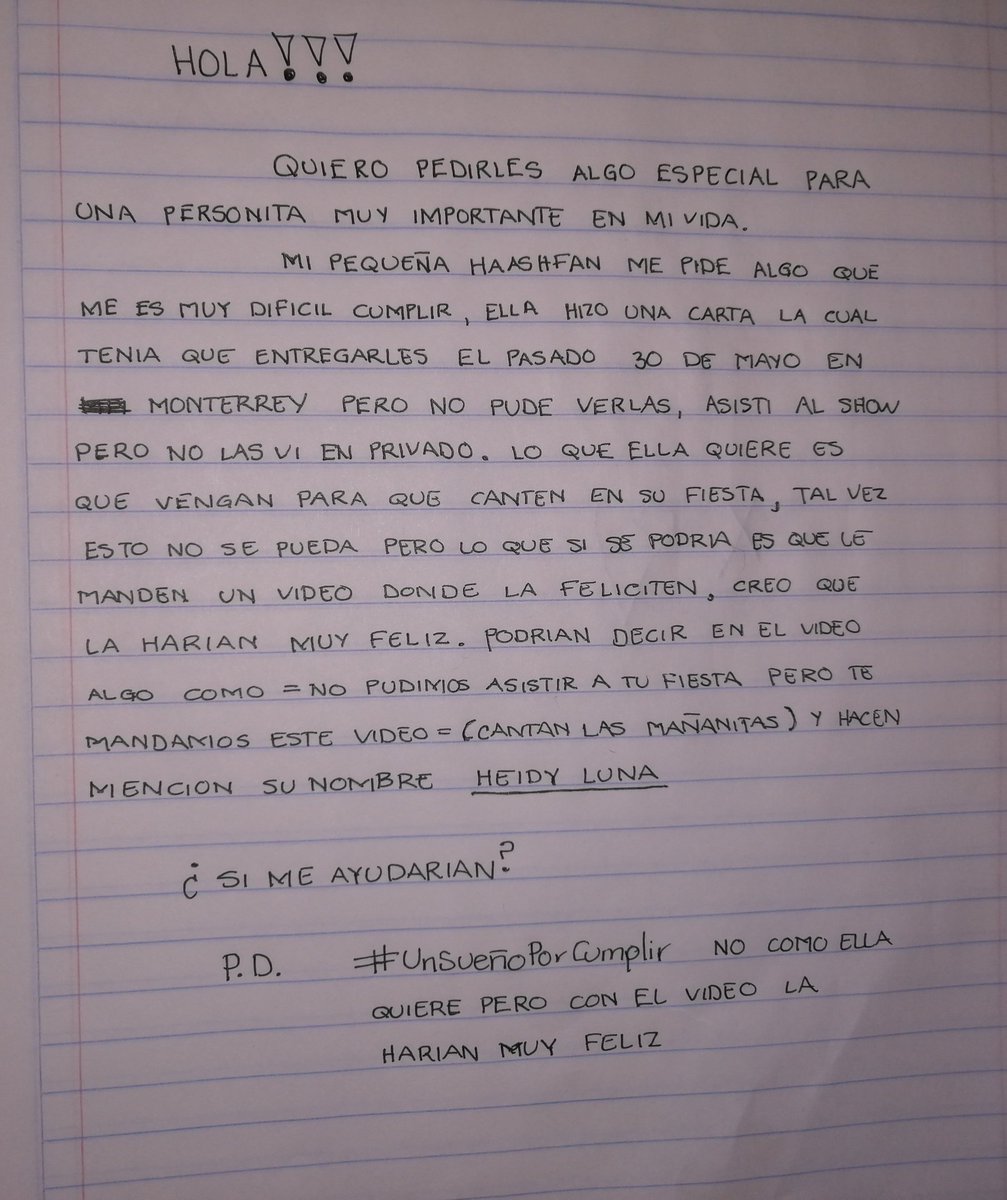 HOLA!!!
QUIERO PEDIRLES ALGO ESPECIAL PARA
UNA PERSONITA MUY IMPORTANTE EN MI VIDA.
MI PEQUEÑA HAASHFAN ME PIDE ALGO QUE
ME ES MUY DIFICIL CUMPLIR, ELLA HIZO UNA CARTA LA CUAL
TENIA QUE ENTREGARLES EL PASADO 30 DE MAYO EN
MONTERREY PERO NO PUDE VERLAS, ASISTI AL SHOW
PERO NO LAS VI EN PRIVADO. LO QUE ELLA QUIERE ES
QUE VENGAN PARA QUE CANTEN EN SU FIESTA, TAL VEZ
ESTO NO SE PUEDA PERO LO QUE SI SE PODRIA ES QUE LE
MANDEN UN VIDEO DONDE LA FELICITEN, CREO QUE
LA HARIAN MUY FELIZ. PODRIAN DECIR EN EL VIDEO
ALGO COMO = NO PUDIMOS ASISTIR A TU FIESTA PERO TE
MANDAMOS ESTE VIDEO = (CANTAN LAS MAÑANITAS) Y HACEN
MENCION SU NOMBRE HEIDY LUNA
¿SI ME AYUDARIAN?
P.D. #UnSueñoPorCumplir NO COMO ELLA
QUIERE PERO CON EL VIDEO LA
HARIAN MUY FELIZ